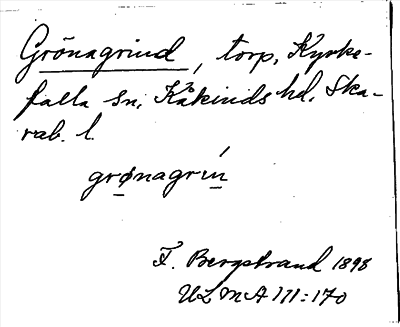 Grönagrind, torp, Kyrke-
falla sn, Kåkinds hd. Ska-
rab. l.
grønagrín
F. Bergstrand 1898
ULMA 111:170